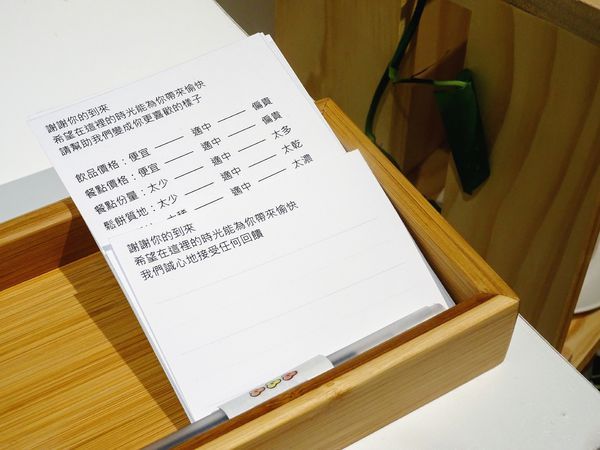 謝謝你的到來
希望在這裡的時光能為你帶來愉快
請幫助我們變成你更喜歡的樣子
飲品價格：便宜 —— 適中 —— 偏貴
餐點價格：便宜 —— 適中 —— 偏貴
餐點份量：太少 —— 適中 —— 太多
鬆餅質地：太少 —— 適中 —— 太乾
適中 —— 太濃
謝謝你的到來
希望在這裡的時光能為你帶來愉快
我們誠心地接受任何回饋